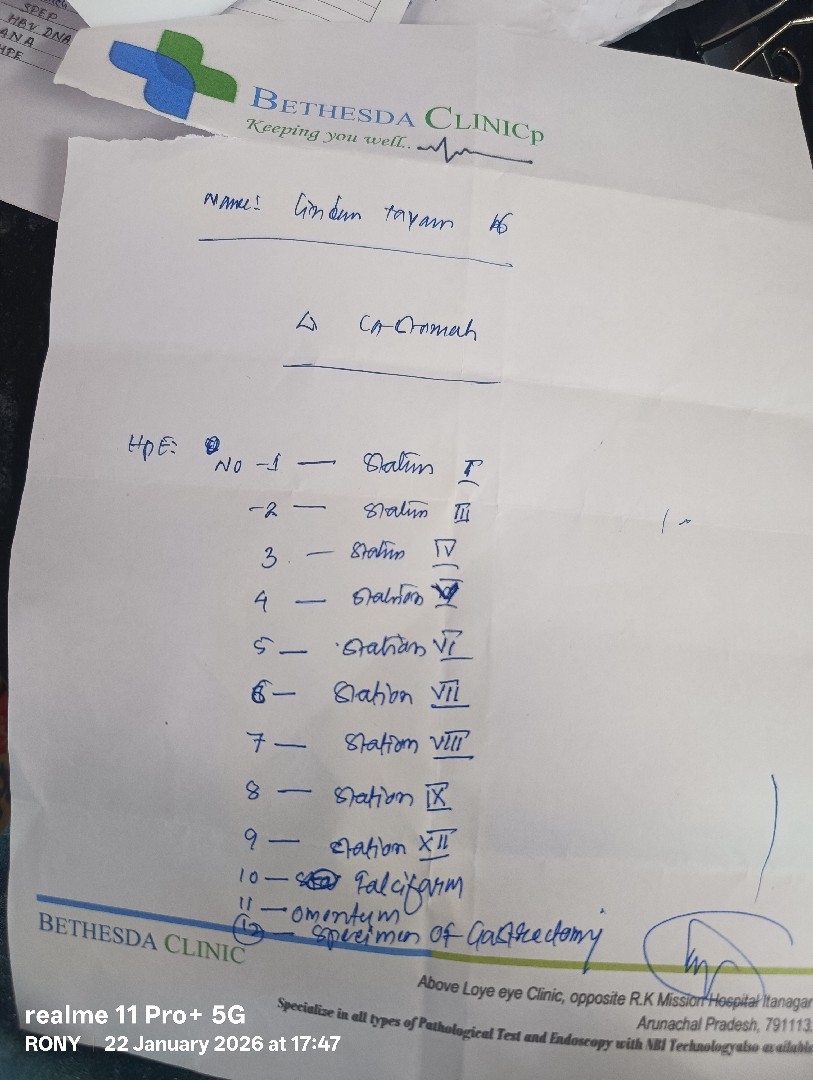 SPEP
HBV DNA
ANA
HPE
BETHESDA CLINICp
Keeping you well..
Name: tayam
Δ Ca-Stomach
HPE: NO -1 — Station I
-2 — Station III
3 — Station IV
4 — Station
5 — Station VI
6 — Station VII
7 — Station VIII
8 — Station IX
9 — Station XII
10 — Falcifarm
11 — omentum
12 — specimen OF Gastrectomy
BETHESDA CLINIC
Above Loye eye Clinic, opposite R.K Mission Hospital Itanagar
Arunachal Pradesh, 791113
Specialize in all types of Pathological Test and Endoscopy with NBI Technologyalso available
realme 11 Pro+ 5G
RONY 22 January 2026 at 17:47